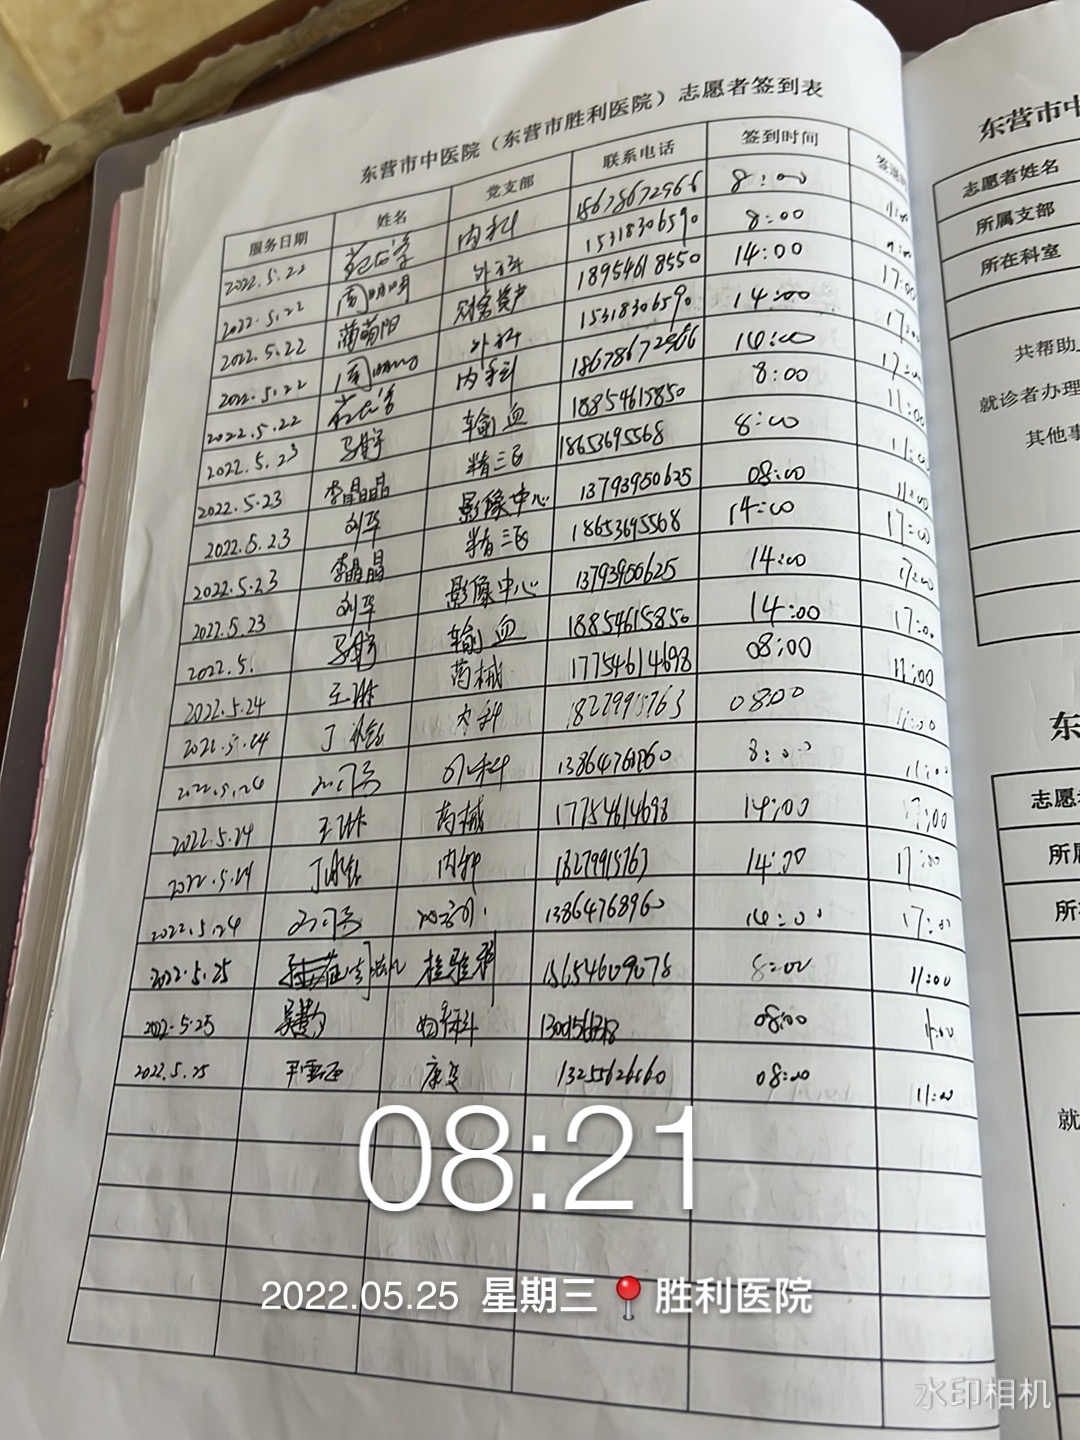 东营市中医院（东营市胜利医院）志愿者签到表
服务日期 姓名 党支部 联系电话 签到时间
2022.5.22 内科 18678672966 8:00 11:00
2022.5.22 周明明 外科 15318306590 8:00 11:00
2022.5.22 蒲菊阳 财务资产 18954618550 14:00 17:00
2022.5.22 周明明 外科 15318306590 14:00 17:00
2022.5.22 内科 18678672966 14:00 17:00
2022.5.23 输血 18854615850 8:00 11:00
2022.5.23 李晶晶 精三 18653695568 8:00 11:00
2022.5.23 刘华 影像中心 13793950625 08:00 11:00
2022.5.23 李晶晶 精三 18653695568 14:00 17:00
2022.5.23 刘华 影像中心 13793950625 14:00 17:00
2022.5. 输血 18854615850 14:00 17:00
2022.5.24 王琳 药械 17754614698 08:00 11:00
2022.5.24 丁 内科 18279915763 0800 11:00
2022.5.24 8:00 11:00
2022.5.24 王琳 药械 17754614698 14:00 17:00
2022.5.24 丁 内科 18279915763 14:00 17:00
2022.5.24 13864768960 14:00 17:00
2022.5.25 检验科 15654609078 8:00 11:00
2022.5.25 08:00 11:00
2022.5.25 康复 13255626660 08:00 11:00
08:21
2022.05.25 星期三 胜利医院
水印相机
东营市中
志愿者姓名
所属支部
所在科室
共帮助
就诊者办理
其他事
东
志愿
所属
所在
就